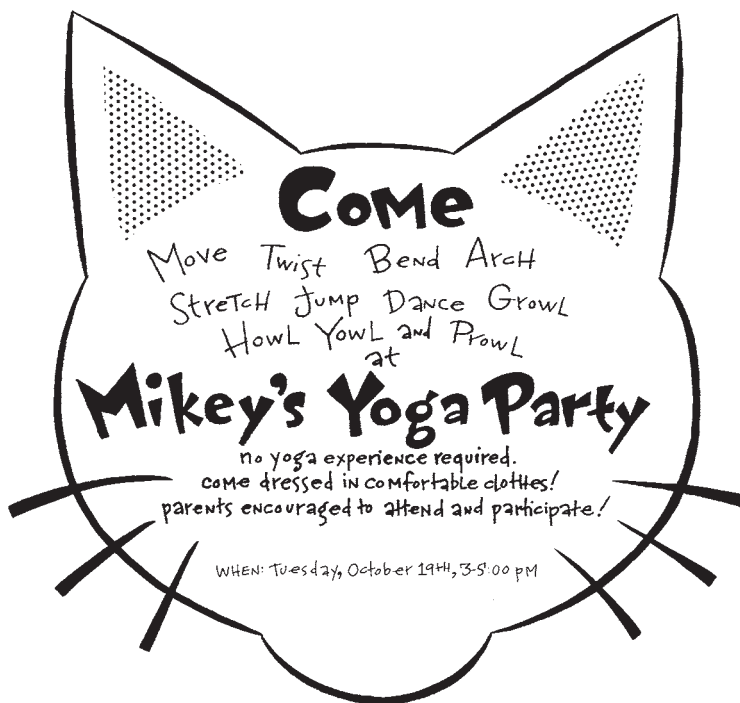 Come
Move Twist Bend Arch
Stretch Jump Dance Growl
Howl Yowl and Prowl
at
Mikey's Yoga Party
no yoga experience required.
come dressed in comfortable clothes!
parents encouraged to attend and participate!
WHEN: Tuesday, October 19TH, 3-5:00 PM